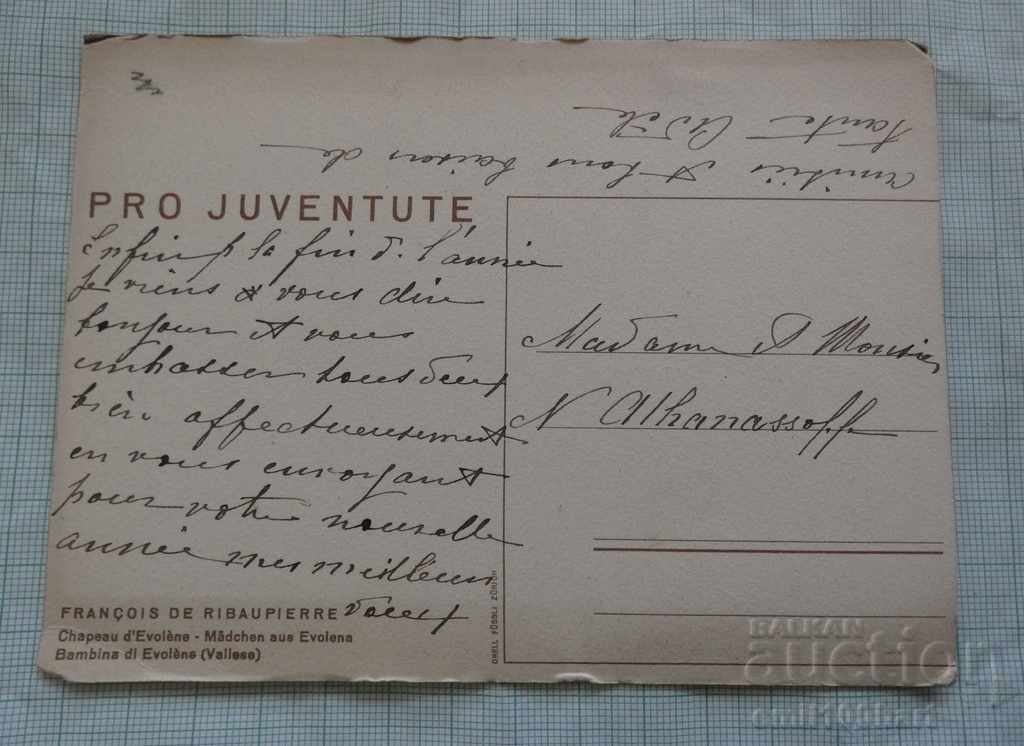 PRO JUVENTUTE
Enfin p la fin d. l'année
je viens à vous dire
bonjour et vous
embrasser tous deux
bien affectueusement
en vous envoyant
pour votre nouvelle
année mes meilleurs
vœux
amitiés et bons baisers de
tante Adèle
Madame et Monsieur
N Athanassoff
FRANÇOIS DE RIBAUPIERRE
Chapeau d'Evolène - Mädchen aus Evolena
Bambina di Evolène (Vallese)
ORELL FÜSSLI ZÜRICH
BALKAN
auction